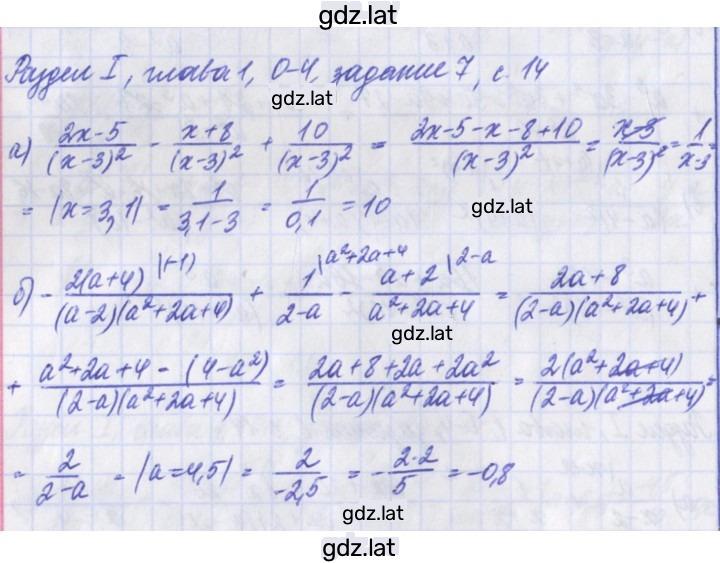 gdz.lat
Раздел I, глава 1, 0-4, задание 7, с. 14
gdz.lat
а) (2x-5)/(x-3)² - (x+8)/(x-3)² + 10/(x-3)² = (2x-5-x-8+10)/(x-3)² = (x-3)/(x-3)² = 1/(x-3) =
= |x=3,1| = 1/(3,1-3) = 1/0,1 = 10
gdz.lat
б) - 2(a+4)/((a-2)(a²+2a+4)) |(-1) + 1/(2-a) |a²+2a+4 - (a+2)/(a²+2a+4) |2-a = (2a+8)/((2-a)(a²+2a+4)) +
gdz.lat
+ (a²+2a+4-(4-a²))/((2-a)(a²+2a+4)) = (2a+8+2a+2a²)/((2-a)(a²+2a+4)) = 2(a²+2a+4)/((2-a)(a²+2a+4)) =
= 2/(2-a) = |a=4,5| = 2/(-2,5) = - (2·2)/5 = -0,8
gdz.lat
gdz.lat